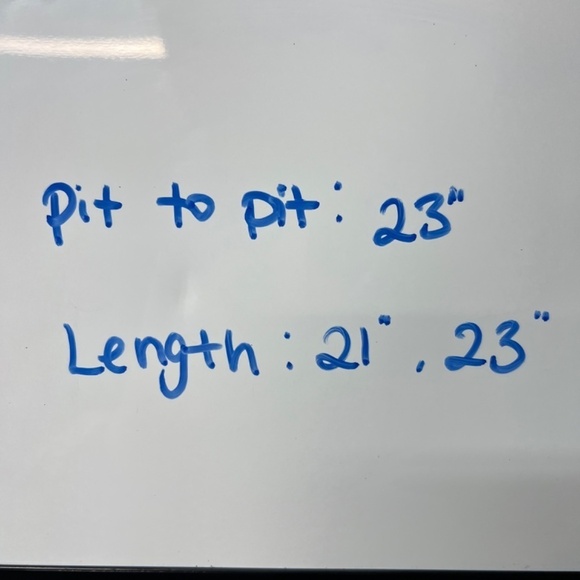 Pit to pit: 23"
Length: 21", 23"